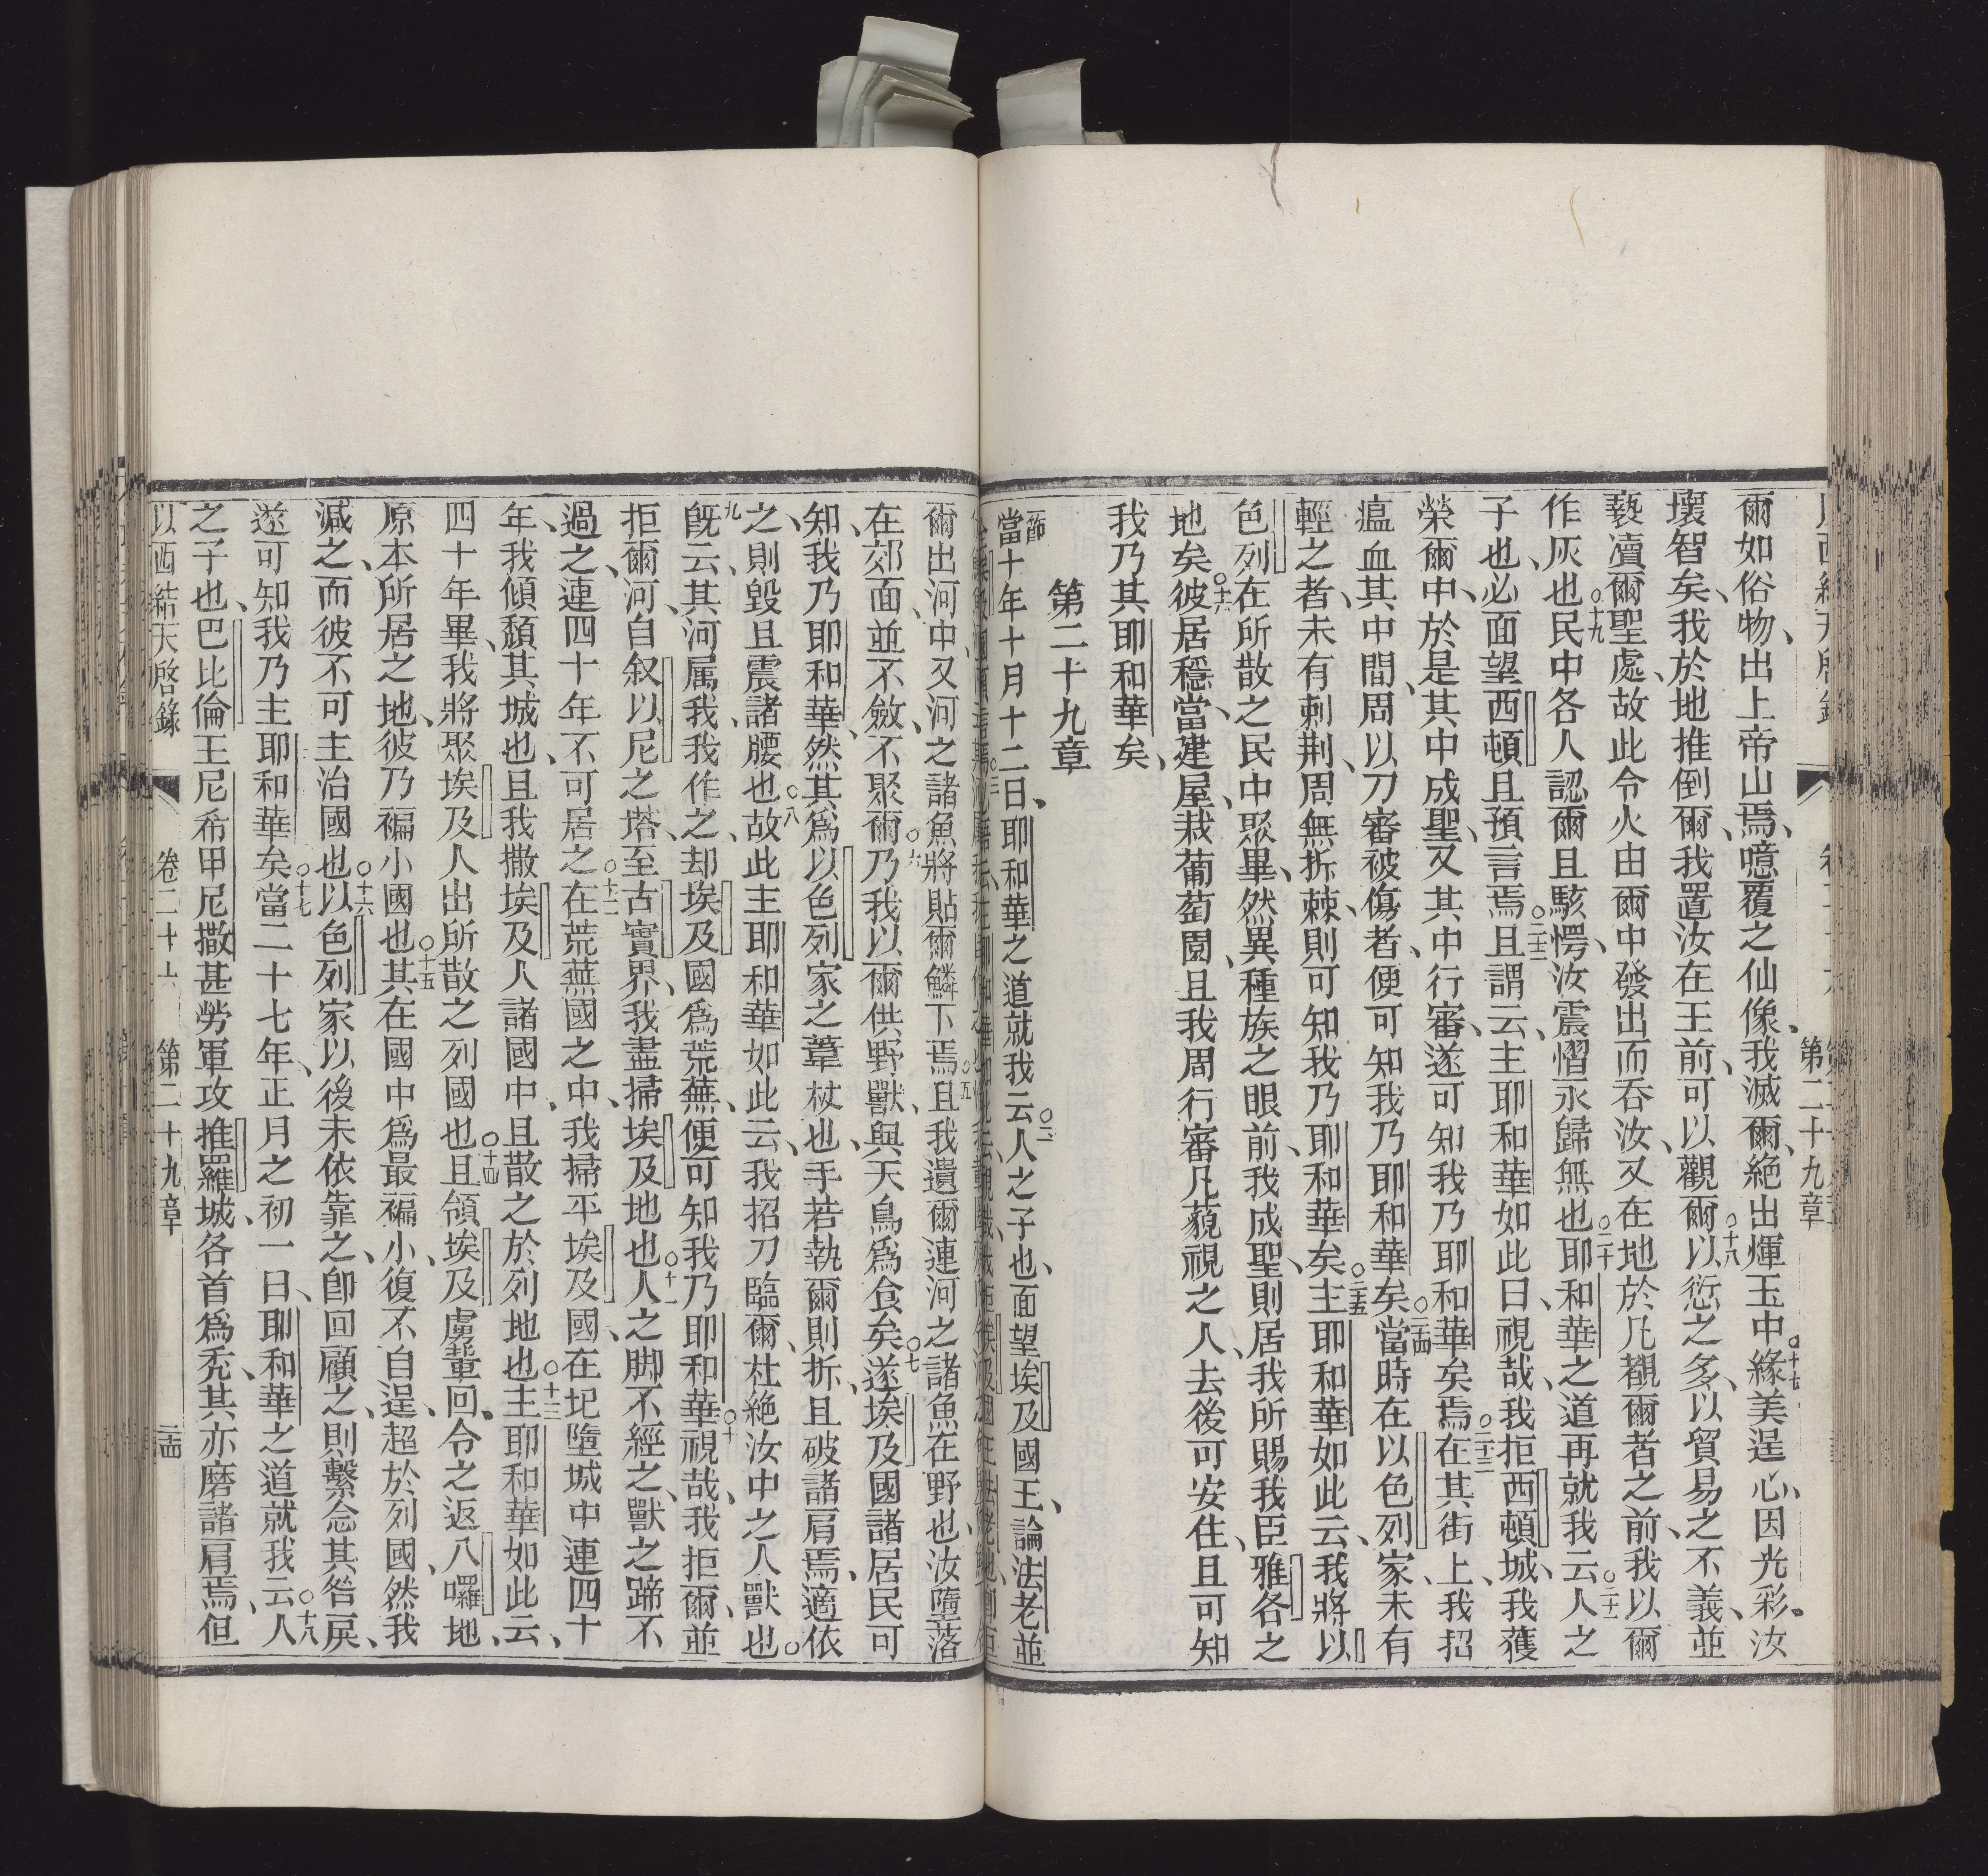 第二十九章
爾如俗物、出上帝山焉、噫覆之仙像、我滅爾、絶出煇玉中、○十七緣美逞心、因光彩。汝
壞智矣、我於地推倒爾、我置汝在王前、可以觀爾、○十八以愆之多、以貿易之不義、並
褻凟爾聖處、故此令火由爾中發出而吞汝、又在地於凡覩爾者之前、我以爾
作灰也、○十九民中各人認爾且駭愕、汝震慴永歸無也、○二十耶和華之道再就我云、○二十一人之
子也、必面望西頓且預言焉、○二十二且謂云、主耶和華如此曰、視哉、我拒西頓城、我獲
榮爾中、於是其中成聖、又其中行審、遂可知我乃耶和華矣、○二十三焉在其街上、我招
瘟血其中間、周以刀審被傷者、便可知我乃耶和華矣、○二十四當時在以色列家、未有
輕之者、未有刺荆、周無折棘、則可知我乃耶和華矣、○二十五主耶和華如此云、我將以
色列在所散之民中聚畢、然異種族之眼前、我成聖、則居我所賜我臣雅各之
地矣、○二十六彼居穩當、建屋、栽葡萄園、且我周行審凡藐視之人、去後可安住、且可知
我乃其耶和華矣、
第二十九章
一節當十年十月十二日、耶和華之道就我云、○二人之子也、面望埃及國王、論法老並
爾出河中、又河之諸魚將貼爾鱗下焉、○五且我遺爾連河之諸魚在野也、汝墮落
在郊面、並不斂、不聚爾、○六乃我以爾供野獸、與天鳥爲食矣、○七遂埃及國諸居民可
知我乃耶和華、然其爲以色列家之葦杖也、手若執爾則折、且破諸肩焉、適依
之、則毀且震諸腰也、○八故此主耶和華如此云、我招刀臨爾、杜絶汝中之人獸也。
九旣云、其河属我、我作之、却埃及國爲荒蕪、便可知我乃耶和華、○十視哉、我拒爾、並
拒爾河、自叙以尼之塔、至古實界、我盡掃埃及地也、○十一人之脚不經之、獸之蹄不
過之、連四十年不可居、○十二之在荒蕪國之中、我掃平埃及國、在圮墮城中連四十
年、我傾頽其城也、且我撒埃及人諸國中、且散之於列地也、○十三主耶和華如此云、
四十年畢、我將聚埃及人出所散之列國也、○十四且領埃及虜輩回、令之返八囉地、
原本所居之地、彼乃褊小國也、○十五其在國中爲最褊小、復不自逞超於列國、然我
減之、而彼不可主治國也、○十六以色列家以後未依靠之、卽回顧之、則繫念其咎戾、
遂可知我乃主耶和華矣、○十七當二十七年、正月之初一日、耶和華之道就我云、○十八人
之子也、巴比倫王尼希甲尼撒甚勞軍攻推羅城、各首爲禿、其亦磨諸肩焉、但
以西結天啓錄 卷二十六 第二十九章 三十四